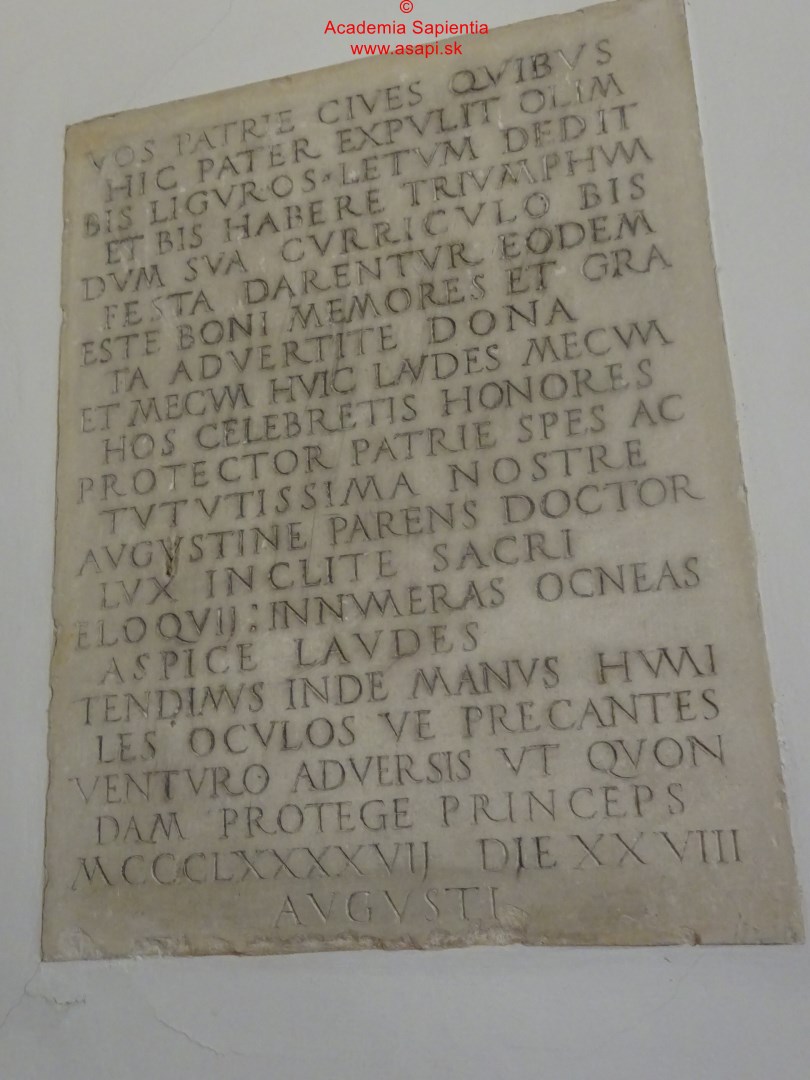 ©
Academia Sapientia
www.asapi.sk
VOS PATRIE CIVES QVIBVS
HIC PATER EXPVLIT OLIM
BIS LIGVROS·LETVM DEDIT
ET BIS HABERE TRIVMPHVM
DVM SVA CVRRICVLO BIS
FESTA DARENTVR EODEM
ESTE BONI MEMORES ET GRA
TA ADVERTITE DONA
ET MECVM HVIC LAVDES MECVM
HOS CELEBRETIS HONORES
PROTECTOR PATRIE SPES AC
TVTVTISSIMA NOSTRE
AVGVSTINE PARENS DOCTOR
LVX INCLITE SACRI
ELOQVIJ : INNVMERAS OCNEAS
ASPICE LAVDES
TENDIMVS INDE MANVS HVMI
LES OCVLOS VE PRECANTES
VENTVRO ADVERSIS VT QVON
DAM PROTEGE PRINCEPS
MCCCLXXXXVIJ DIE XXVIII
AVGVSTI